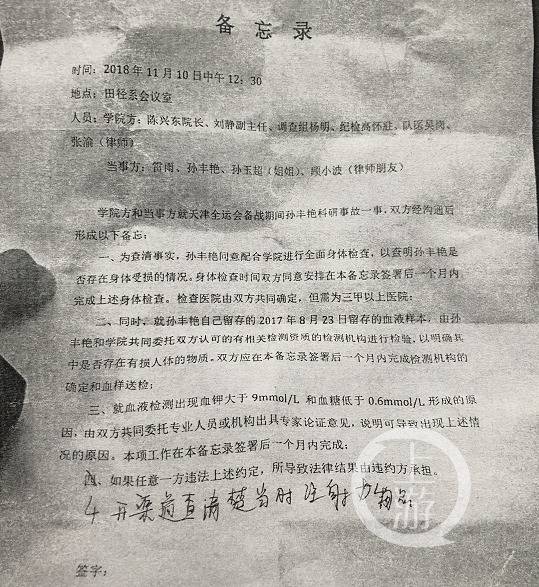 备忘录
时间：2018年11月10日中午12：30
地点：田径系会议室
人员：学院方：陈兴东院长、刘静副主任、调查组杨明、纪检高怀驻、队医吴岗、
张渝（律师）
当事方：雷雨、孙丰艳、孙玉超（姐姐）、顾小波（律师朋友）
学院方和当事方就天津全运会备战期间孙丰艳科研事故一事，双方经沟通后
形成以下备忘：
一、为查清事实，孙丰艳同意配合学院进行全面身体检查，以查明孙丰艳是
否存在身体受损的情况。身体检查时间双方同意安排在本备忘录签署后一个月内
完成上述身体检查。检查医院由双方共同确定，但需为三甲以上医院；
二、同时，就孙丰艳自己留存的2017年8月23日留存的血液样本，由孙
丰艳和学院共同委托双方认可的有相关检测资质的检测机构进行检验，以明确其
中是否存在有损人体的物质。双方应在本备忘录签署后一个月内完成检测机构的
确定和血样送检；
三、就血液检测出现血钾大于9mmol/L 和血糖低于0.6mmol/L 形成的原
因，由双方共同委托专业人员或机构出具专家论证意见，说明可导致出现上述情
况的原因。本项工作在本备忘录签署后一个月内完成；
四、如果任意一方违法上述约定，所导致法律结果由违约方承担。
4 开渠道查清楚当时注射 物品
签字：
上游